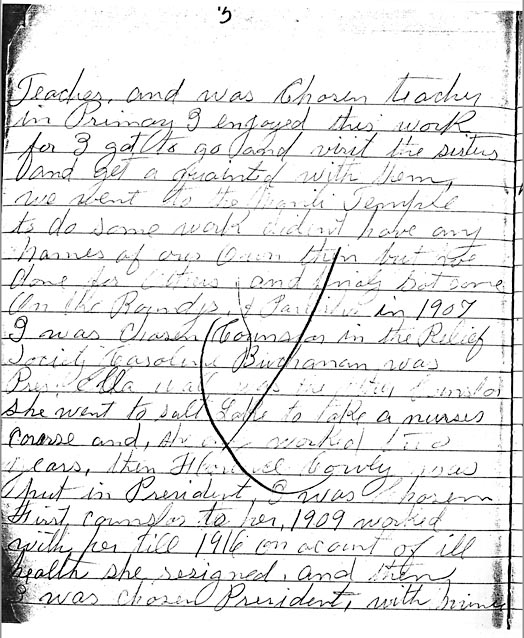 3
Teacher, and was Chosen teacher
in Primary I enjoyed this work
for I got to go and visit the sisters
and get a quainted with them,
we went to the Manti Temple
to do some work dident have any
names of our Own then but
done for Others, and
On the Roundys & in 1907
I was Chosen Counslor in the Relief
Society Caroline Buchanan was
Pres. Ella was
she went to salt Lake to take a nurses
course and, she worked two
years, then Cowly was
put in President, I was Chosen
First, counslor to her, 1909 worked
with her till 1916 on acount of ill
health she resigned, and then,
I was chosen President, with mine